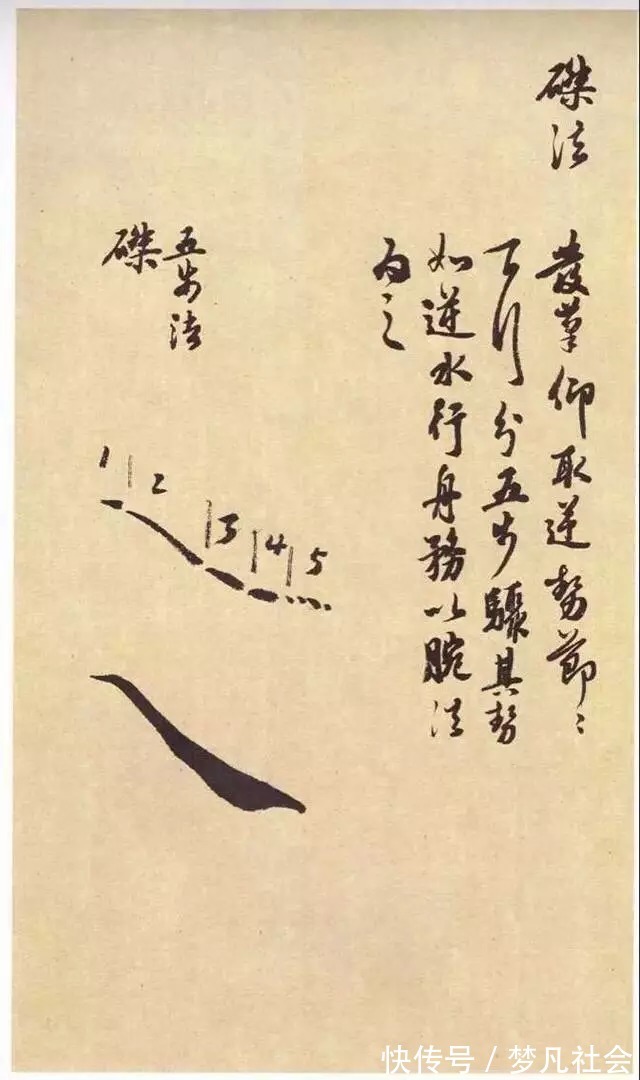 磔法
發筆仰取逆勢節〻
下行分五步驟其勢
如逆水行舟務以腕法
为之
五步法
磔
1 2 3 4 5
快传号/梦凡社会